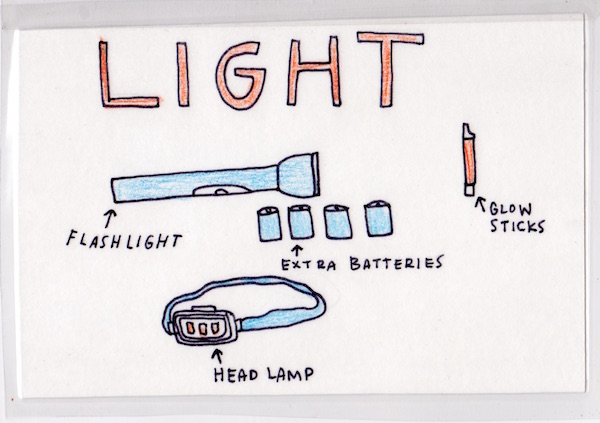 LIGHT
FLASHLIGHT
EXTRA BATTERIES
GLOW
STICKS
HEAD LAMP